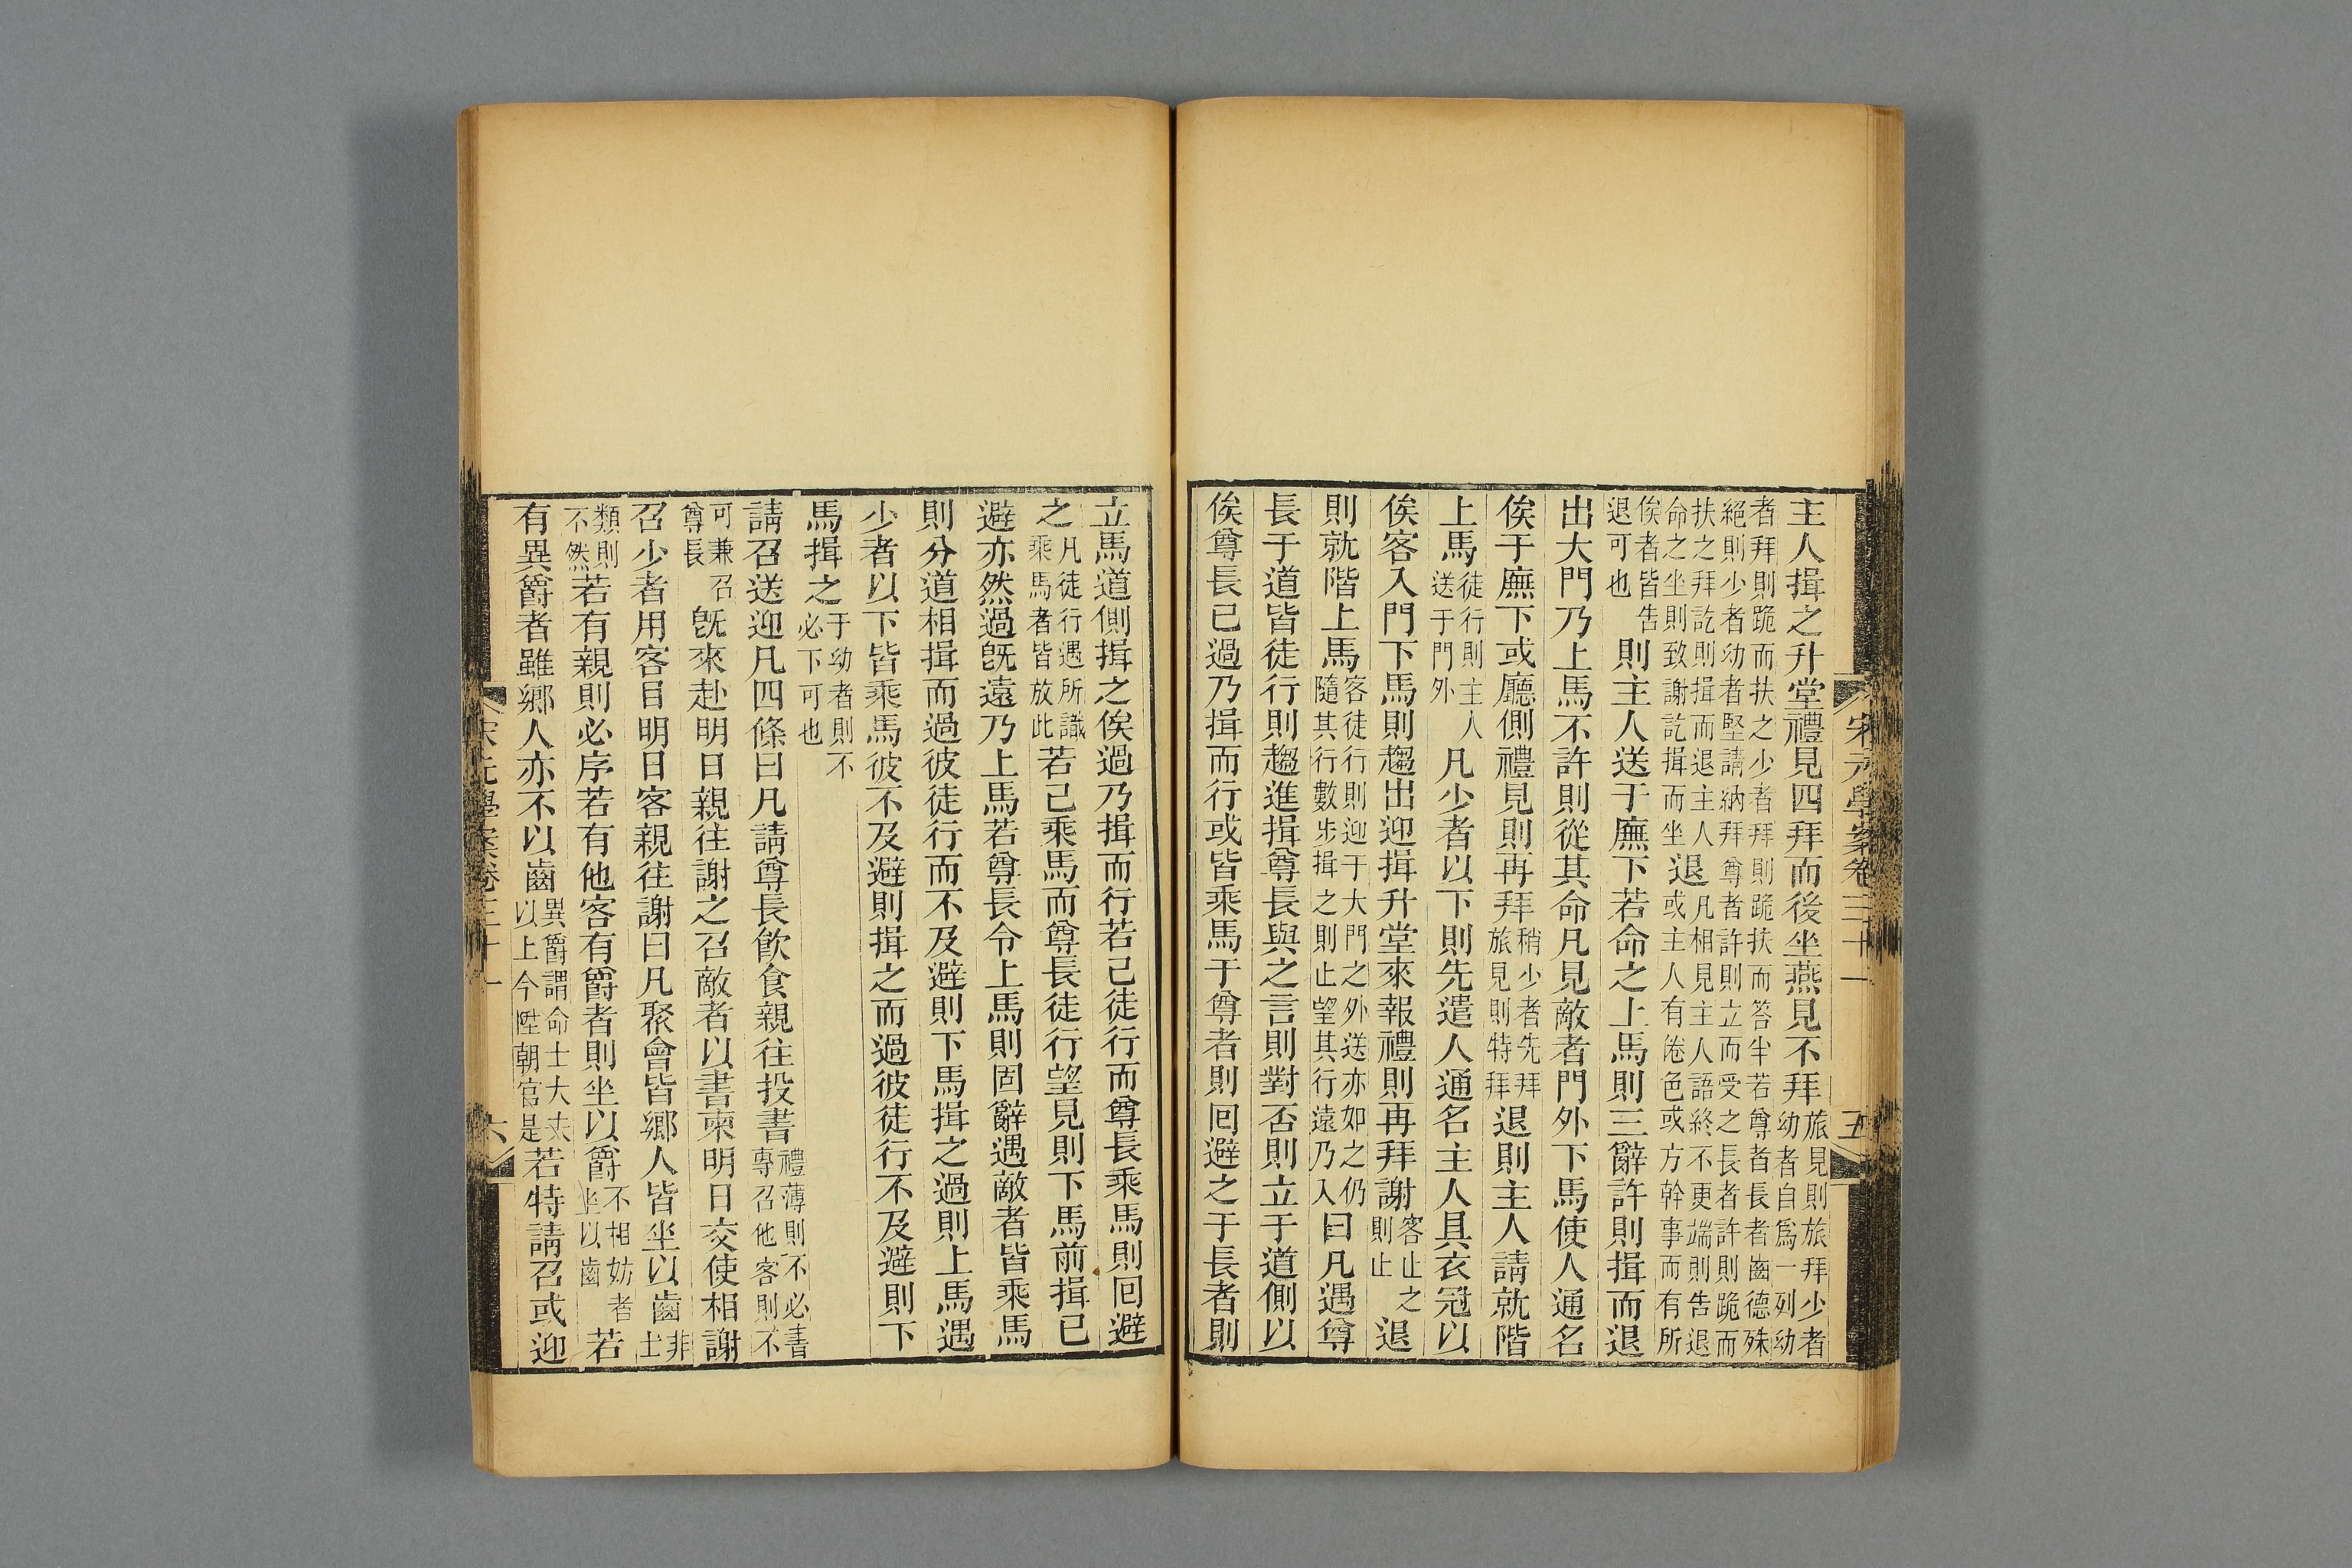 宋元學案卷三十一
五
主人揖之升堂禮見四拜而後坐燕見不拜旅見則旅拜少者幼者自爲一列幼
者拜則跪而扶之少者拜則跪扶而答半若尊者長者齒德殊絕則少者幼者堅請納拜尊者許則立而受之長者許則跪而
扶之拜訖則揖而退主人命之坐則致謝訖揖而坐退凡相見主人語終不更端則告退或主人有倦色或方幹事而有所
俟者皆告退可也則主人送于廡下若命之上馬則三辭許則揖而退
出大門乃上馬不許則從其命凡見敵者門外下馬使人通名
俟于廡下或廳側禮見則再拜稍少者先拜旅見則特拜退則主人請就階
上馬徒行則主人送于門外凡少者以下則先遣人通名主人具衣冠以
俟客入門下馬則趨出迎揖升堂來報禮則再拜謝客止之則止退
則就階上馬客徒行則迎于大門之外送亦如之仍隨其行數步揖之則止望其行遠乃入曰凡遇尊
長于道皆徒行則趨進揖尊長與之言則對否則立于道側以
俟尊長已過乃揖而行或皆乘馬于尊者則回避之于長者則
立馬道側揖之俟過乃揖而行若己徒行而尊長乘馬則回避
之凡徒行遇所識乘馬者皆放此若己乘馬而尊長徒行望見則下馬前揖已
避亦然過旣遠乃上馬若尊長令上馬則固辭遇敵者皆乘馬
則分道相揖而過彼徒行而不及避則下馬揖之過則上馬遇
少者以下皆乘馬彼不及避則揖之而過彼徒行不及避則下
馬揖之于幼者則不必下可也
請召送迎凡四條曰凡請尊長飮食親往投書禮薄則不必書專召他客則不
可兼召尊長旣來赴明日親往謝之召敵者以書柬明日交使相謝
召少者用客目明日客親往謝曰凡聚會皆鄉人皆坐以齒非士
類則不然若有親則必序若有他客有爵者則坐以爵不相妨者坐以齒若
有異爵者雖鄉人亦不以齒異爵謂命士大夫以上今陞朝官是若特請召或迎
宋元學案卷三十一
六